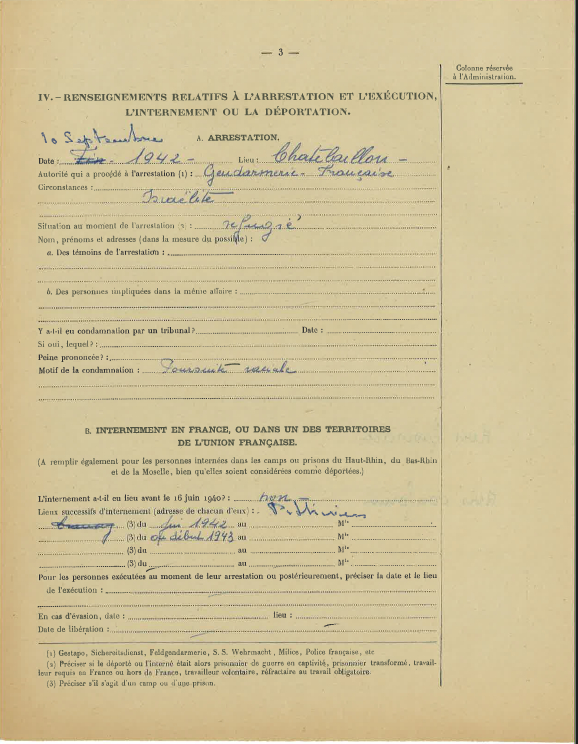 — 3 —
Colonne réservée
à l'Administration.
IV. – RENSEIGNEMENTS RELATIFS À L'ARRESTATION ET L'EXÉCUTION,
L'INTERNEMENT OU LA DÉPORTATION.
10 Septembre
A. ARRESTATION.
Date : Fin - 1942 - Lieu : Chatelaillon -
Autorité qui a procédé à l'arrestation (1) : Gendarmerie - Française
Circonstances :
Israélite
Situation au moment de l'arrestation (2) : refugié
Nom, prénoms et adresses (dans la mesure du possible) :
a. Des témoins de l'arrestation :
b. Des personnes impliquées dans la même affaire :
Y a-t-il eu condamnation par un tribunal ? Date :
Si oui, lequel ? :
Peine prononcée ? :
Motif de la condamnation : Poursuite raciale
B. INTERNEMENT EN FRANCE, OU DANS UN DES TERRITOIRES
DE L'UNION FRANÇAISE.
(A remplir également pour les personnes internées dans les camps ou prisons du Haut-Rhin, du Bas-Rhin
et de la Moselle, bien qu'elles soient considérées comme déportées.)
L'internement a-t-il eu lieu avant le 16 juin 1940 ? : non -
Lieux successifs d'internement (adresse de chacun d'eux) : Pithiviers
(3) du fin 1942 au Mle
(3) du ou début 1943 au Mle
(3) du au Mle
(3) du au Mle
Pour les personnes exécutées au moment de leur arrestation ou postérieurement, préciser la date et le lieu
de l'exécution :
En cas d'évasion, date : lieu :
Date de libération :
(1) Gestapo, Sichereitsdienst, Feldgendarmerie, S. S. Wehrmacht, Milice, Police française, etc
(2) Préciser si le déporté ou l'interné était alors prisonnier de guerre en captivité, prisonnier transformé, travail-
leur requis en France ou hors de France, travailleur volontaire, réfractaire au travail obligatoire.
(3) Préciser s'il s'agit d'un camp ou d'une prison.